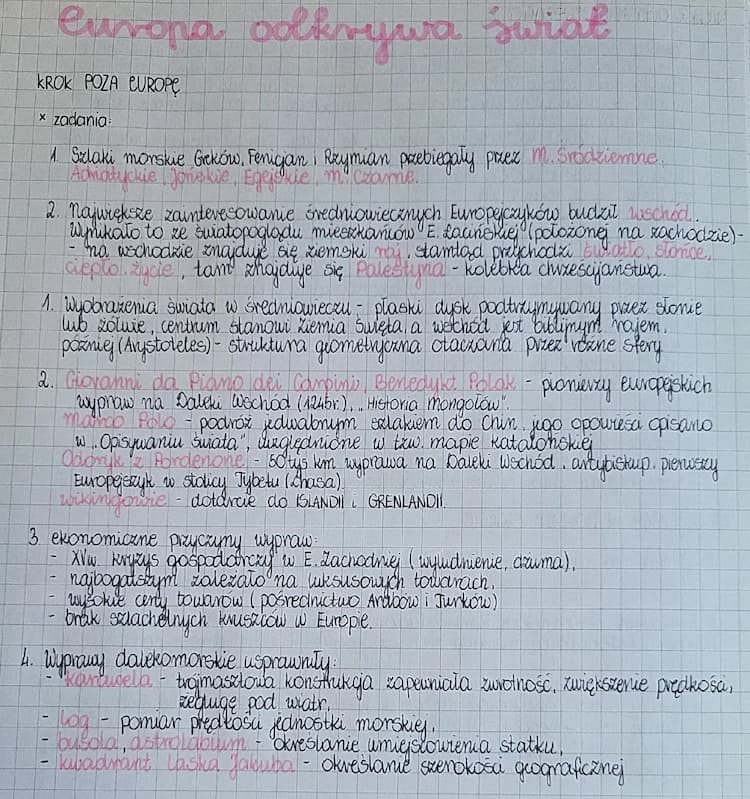 Europa odkrywa świat
KROK POZA EUROPĘ
* zadania:
1. Szlaki morskie Greków, Fenicjan i Rzymian przebiegały przez m. Śródziemne,
Adriatyckie, Jońskie, Egejskie, m. Czarne.
2. Największe zainteresowanie średniowiecznych Europejczyków budził wschód.
Wynikało to ze światopoglądu mieszkańców E. Łacińskiej (położonej na zachodzie)-
- na wschodzie znajduje się ziemski raj, stamtąd przychodzi światło, słońce,
ciepło, życie, tam znajduje się Palestyna - kolebka chrześcijaństwa.
1. Wyobrażenia świata w średniowieczu - płaski dysk podtrzymywany przez słonie
lub żółwie, centrum stanowi Ziemia Święta, a wschód jest biblijnym rajem,
później (Arystoteles) - struktura geometryczna otaczana przez różne sfery
2. Giovanni da Piano dei Carpini, Benedykt Polak - pionierzy europejskich
wypraw na Daleki Wschód (1245r.), "Historia Mongołów".
Marco Polo - podróż jedwabnym szlakiem do Chin, jego opowieści opisano
w "Opisywaniu świata", uwzględnione w tzw. mapie katalońskiej
Odoryk z Pordenone - 50 tys km wyprawa na Daleki Wschód, arcybiskup, pierwszy
Europejczyk w stolicy Tybetu (Lhasa).
wikingowie - dotarcie do ISLANDII i GRENLANDII.
3. ekonomiczne przyczyny wypraw:
- XVw. kryzys gospodarczy w E. Zachodniej (wyludnienie, dżuma),
- najbogatszym zależało na luksusowych towarach,
- wysokie ceny towarów (pośrednictwo Arabów i Turków)
- brak szlachetnych kruszców w Europie.
4. Wyprawy dalekomorskie usprawniły:
- karawela - trójmasztowa konstrukcja zapewniała zwrotność, zwiększenie prędkości,
żeglugę pod wiatr,
- log - pomiar prędkości jednostki morskiej,
- busola, astrolabium - określanie umiejscowienia statku,
- kwadrant Laska Jakuba - określanie szerokości geograficznej